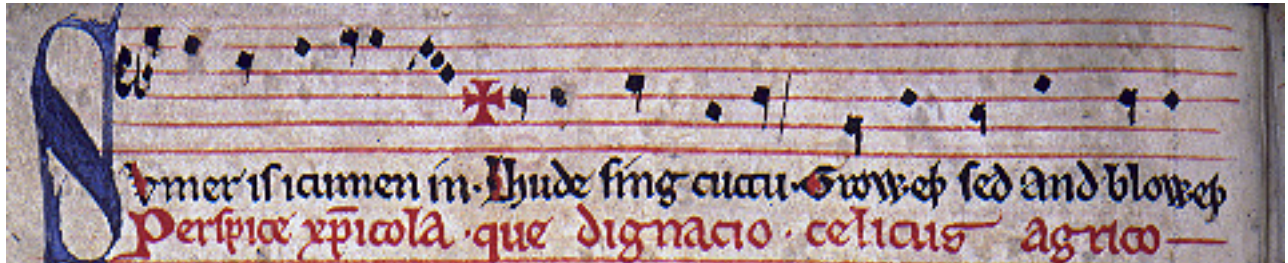 Svmer is icumen in. Lhude sing cuccu. Groweþ sed and bloweþ
Perspice xp̄icola. que dignacio. celicus agrico